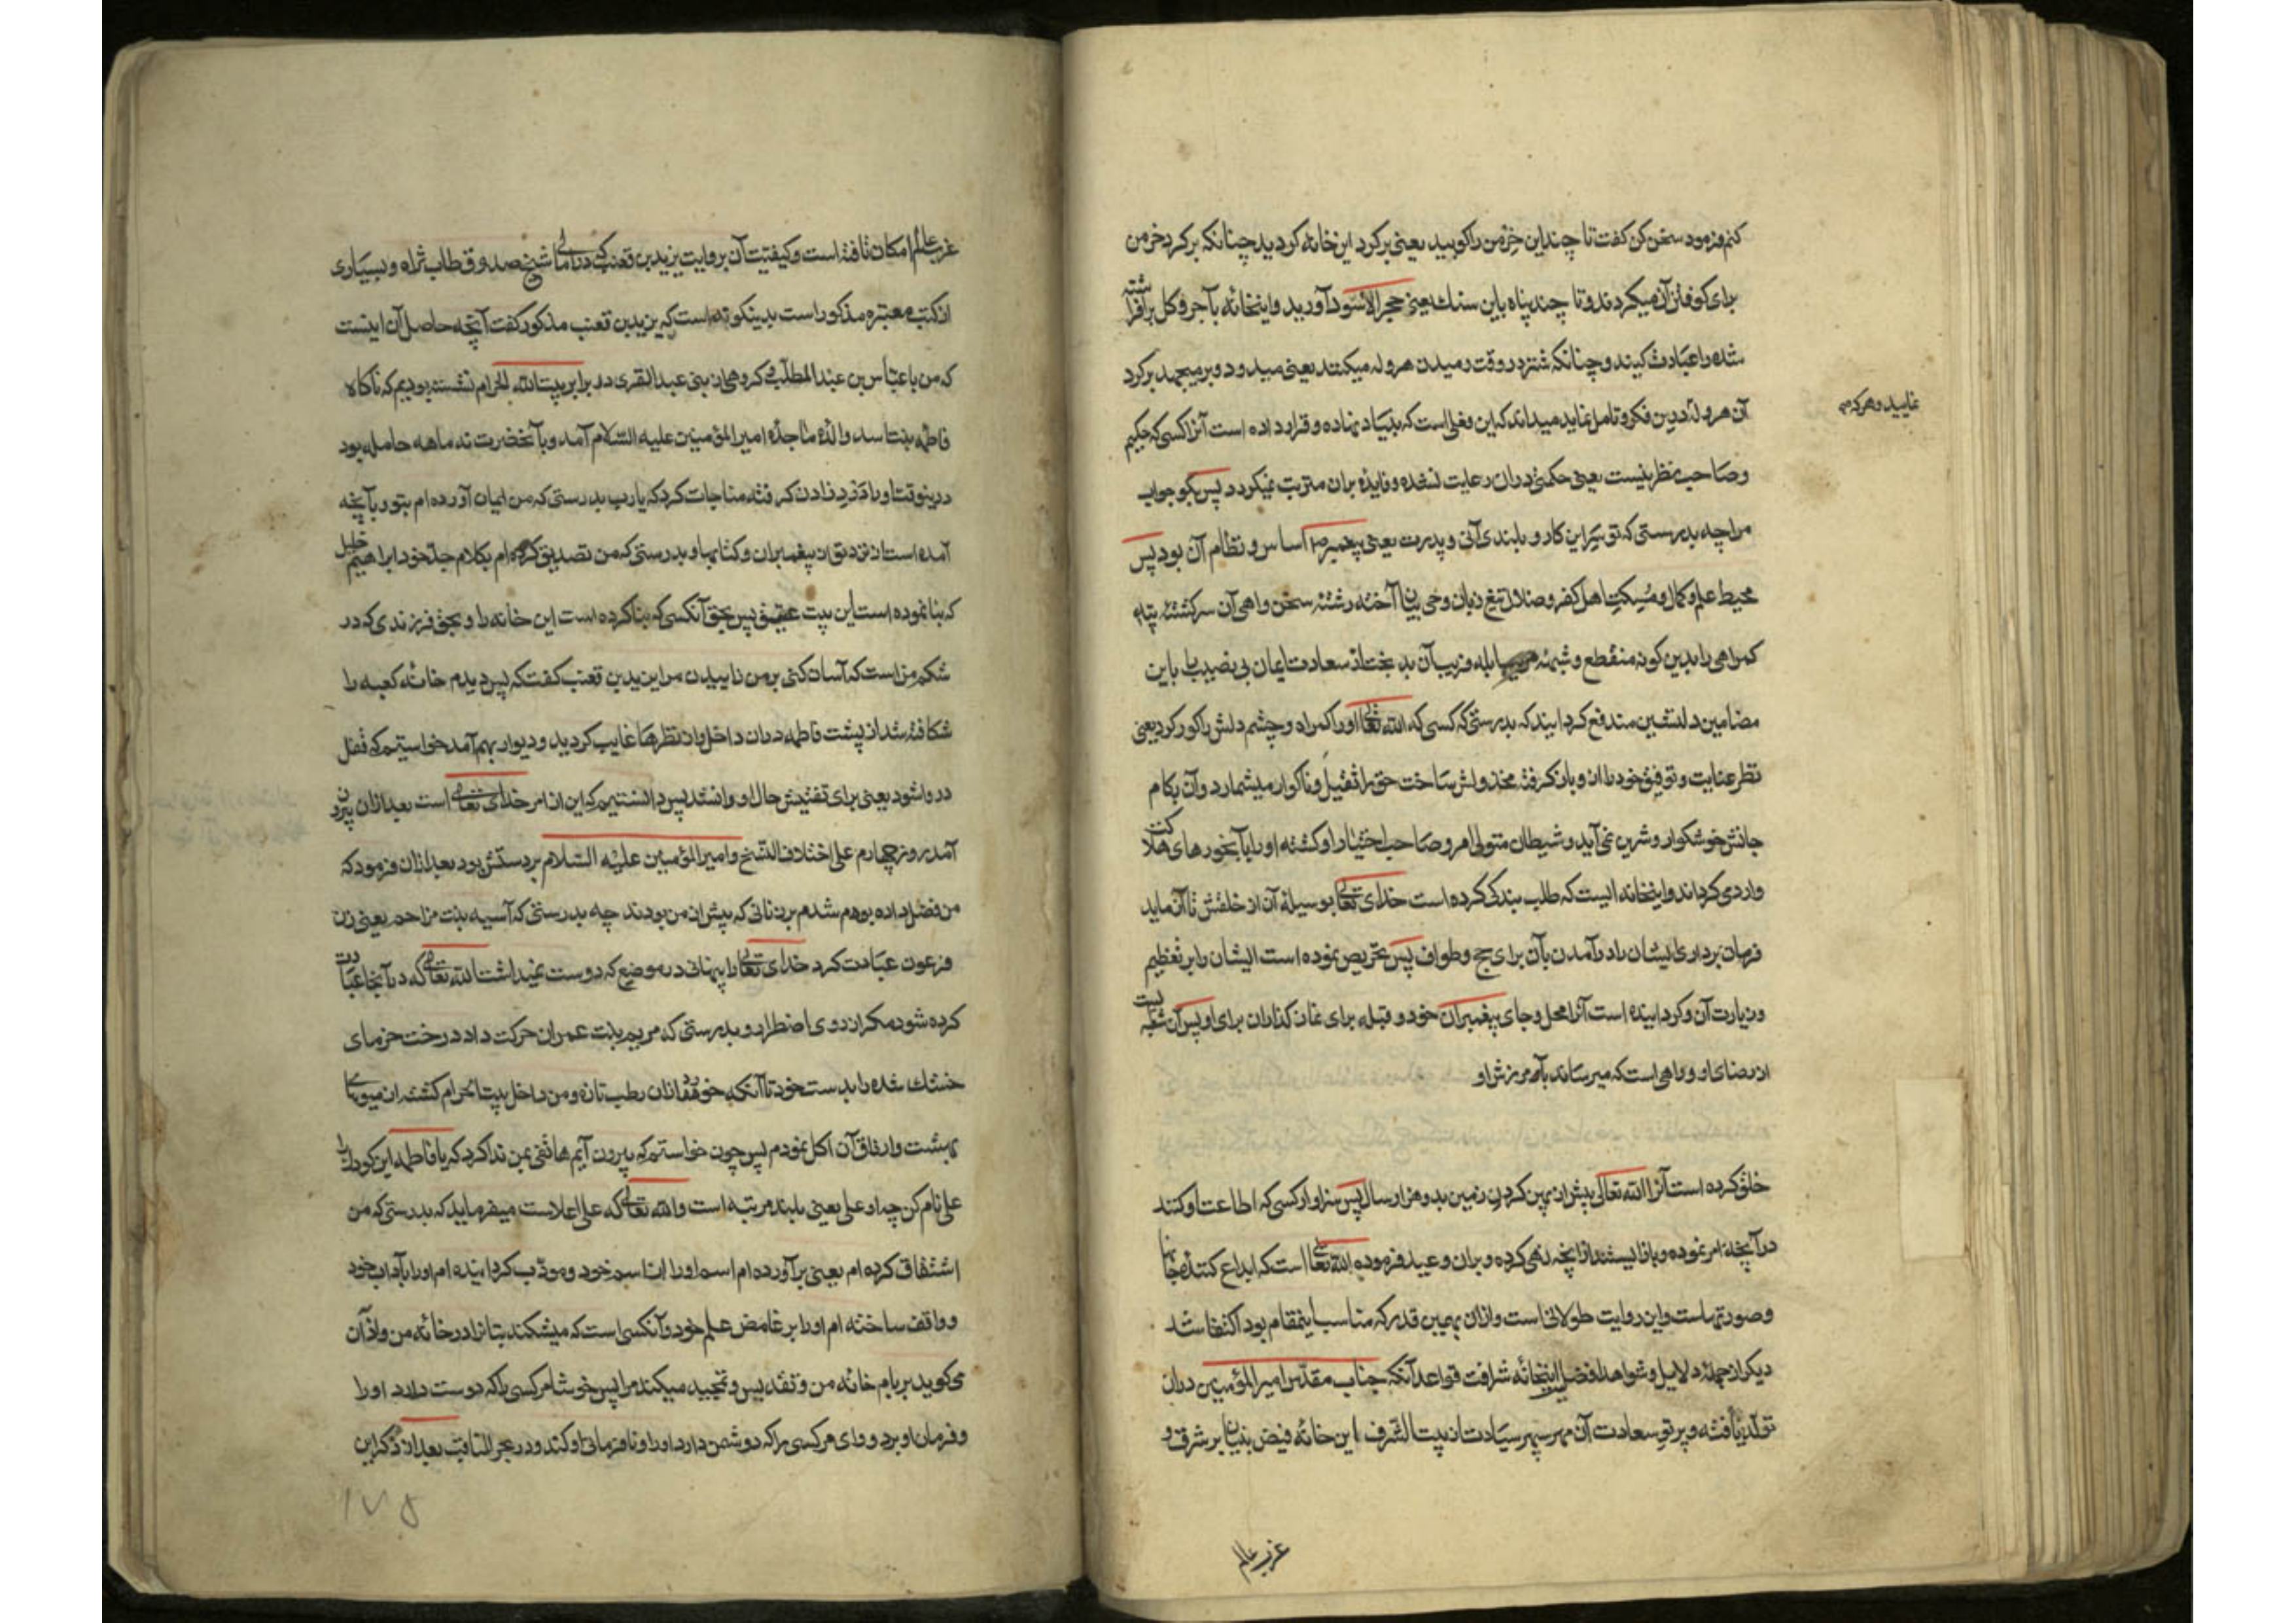 کنم فرمود سخن کن گفت تا چند این خرمن را کوبید یعنی بر گرد این خانه گردید چنانکه بر گرد خرمن
برای کوفتن آن میگردند و تا چند پناه باین سنك یعنی حجر الاسود آورید و اینخانه بآجر و کل برافراشته
شده را عبادت کنید و چنانکه شتر در وقت رمیدن هروله میکند یعنی میدود و برمیجهد بر گرد
آن هروله
نمایید و هر که
درین فکر و تامل نماید میداند که این فعلی است که بنیاد نهاده و قرار داده است آنرا کسی که حکیم
و صاحب نظر نیست یعنی حکمتی در آن رعایت نشده و فایده بر آن مترتب نمیگردد پس بگو جواب
مرا چه بدرستی که تو سر این کار و بلندی آنی و پدرت یعنی پیغمبر ص اساس و نظام آن بود پس
محیط علم و کمال و مسکت اهل کفر و ضلال تیغ زبان وحی بیان آخته رشتهٔ سخن واهی آن سرگشتهٔ تیه
کمراهی را بدین گونه منقطع و شبههٔ ابله فریب آن بدبخت از سعادت ایمان بی نصیب را باین
مضامین دلنشین مندفع گردانید که بدرستی که کسی که الله تعالی او را گمراه و چشم دلش را کور کرد یعنی
نظر عنایت و توفیق خود را از و باز گرفته مخذولش ساخت حق را ثقیل و ناگوار میشمارد و آن بکام
جانش خوشگوار و شیرین نمی آید و شیطان متولی امر و صاحب اختیار او گشته او را بآبخورهای هلاکت
وارد می گرداند و اینخانه ایست که طلب بندگی کرده است خدای تعالی بوسیلهٔ آن از خلقش تا آزماید
فرمان برداری ایشان را در آمدن بآن برای حج و طواف پس تحریص نموده است ایشان را بر تعظیم
و زیارت آن و گردانیده است آنرا محل و جای پیغمبران خود و قبله برای نماز گذاران برای او پس آن شعبه ایست
از رضای او و راهی است که میرساند بآمرزش او
خلق کرده است آنرا الله تعالی پیش از پهن کردن زمین بدو هزار سال پس سزاوار کسی که اطاعت او کنند
در آنچه امر نموده و باز ایستند از آنچه نهی کرده و بر آن وعید فرموده الله تعالی است که ابداع کنندهٔ جانها
و صورتهاست و این روایت طولانی است و از آن بهمین قدر که مناسب اینمقام بود اکتفا شد
دیگر از جمله دلایل و شواهد فضل اینخانه شرافت قواعد آنکه جناب مقدس امیر المؤمنین در آن
تولد یافته و پرتو سعادت آن مهر سپهر سیادت از بیت الشرف این خانهٔ فیض بنیان بر شرق و
غرب عالم
غرب عالم امکان تافته است و کیفیت آن بروایت یزید بن قعنب که در امالی شیخ صدوق طاب ثراه و بسیاری
از کتب معتبره مذکور است بدینگونه است که یزید بن قعنب مذکور گفت آنچه حاصل آن اینست
که من با عباس بن عبد المطلب و گروهی از بنی عبد العزی در برابر بیت الله الحرام نشسته بودیم که ناگاه
فاطمه بنت اسد والدهٔ ماجدهٔ امیر المؤمنین علیه السلام آمد و بآنحضرت نه ماهه حامله بود
درینوقت او را درد زادن گرفته مناجات کرد که یا رب بدرستی که من ایمان آورده ام بتو و بآنچه
آمده است از نزد تو از پیغمبران و کتابها و بدرستی که من تصدیق کرده ام بکلام جد خود ابراهیم خلیل
که بنا نموده است این بیت عتیق پس بحق آنکسی که بنا کرده است این خانه را و بحق فرزندی که در
شکم من است که آسان کنی بر من زاییدن مرا یزید بن قعنب گفت که پس دیدم خانهٔ کعبه را
شکافته شد از پشت فاطمه در آن داخل و از نظرها غایب گردید و دیوار بهم آمد خواستیم که قفل
در وا شود یعنی برای تفتیش حال او وا نشد پس دانستیم که این از امر خدای تعالی است بعد از آن بیرون
آمد روز چهارم علی اختلاف النسخ و امیر المؤمنین علیه السلام بر دستش بود بعد از آن فرمود که
من فضل داده بودم شدم بر زنانی که پیش از من بودند چه بدرستی که آسیه بنت مزاحم یعنی زن
فرعون عبادت کرد خدای تعالی را پنهانی در موضع که دوست نمیداشت الله تعالی که در آنجا عبادت
کرده شود مگر از روی اضطرار و بدرستی که مریم بنت عمران حرکت داد درخت خرمای
خشك شده را بدست خود تا آنکه خورد از آن رطب تازه و من داخل بیت الحرام گشته از میوهای
بهشت و ارزاق آن اکل نمودم پس چون خواستم که بیرون آیم هاتفی بمن ندا کرد که یا فاطمه این کودك را
علی نام کن چه او علی یعنی بلند مرتبه است و الله تعالی که علی اعلاست میفرماید که بدرستی که من
اشتقاق کرده ام یعنی برآورده ام اسم او را از اسم خود و مودب گردانیده ام او را بآداب خود
و واقف ساخته ام او را بر غامض علم خود و آنکسی است که میشکند بتان را در خانهٔ من و اذان
می گوید بر بام خانه من و تقدیس و تمجید میکند مرا پس خوشا مر کسی را که دوست دارد او را
و فرمان او برد و وای مر کسی را که دشمن دارد او را و نافرمانی او کند و در بحر المناقب بعد از ذکر این
۱۷۵